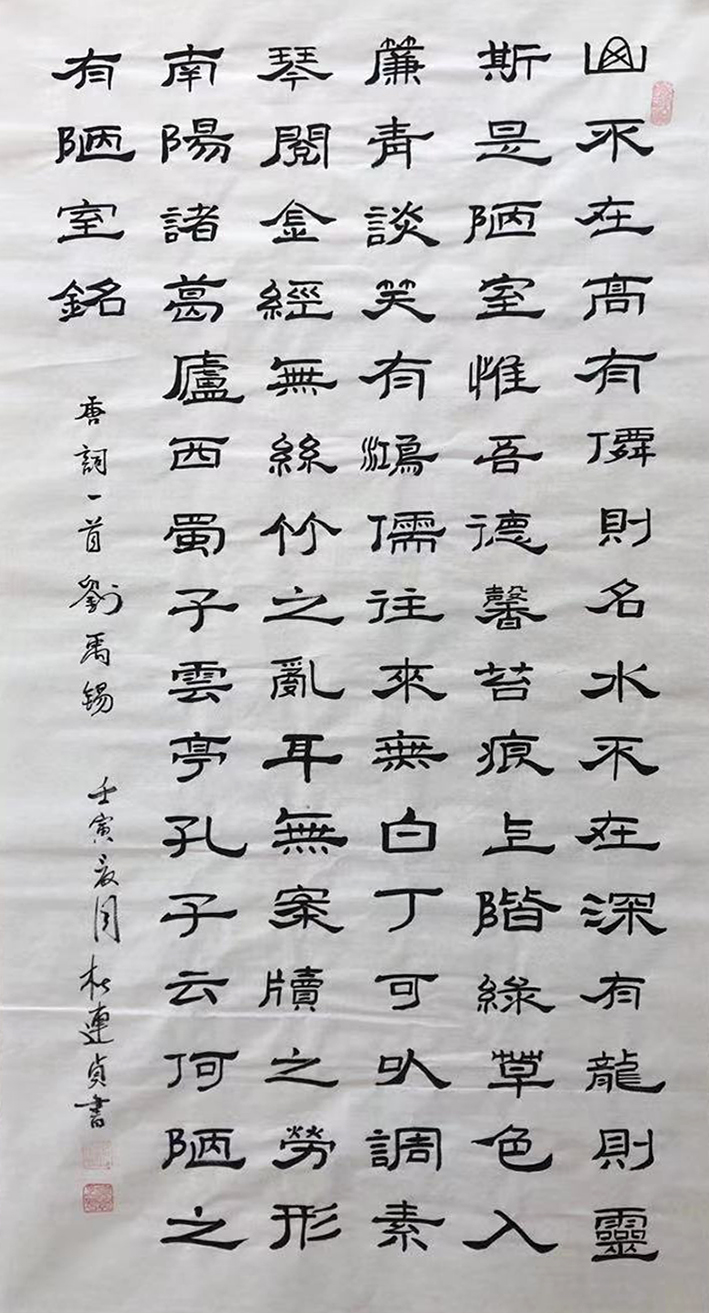 山不在高有僊則名水不在深有龍則靈
斯是陋室惟吾德馨苔痕上階綠草色入
簾青談笑有鴻儒往來無白丁可以調素
琴閱金經無絲竹之亂耳無案牘之勞形
南陽諸葛廬西蜀子雲亭孔子云何陋之
有陋室銘
唐詞一首劉禹錫 壬寅夏月 杜連貞書